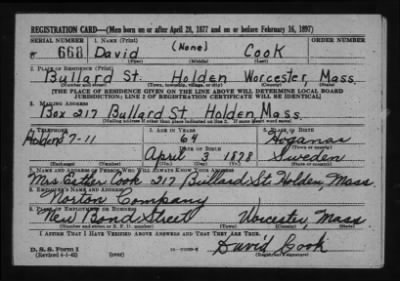 REGISTRATION CARD—(Men born on or after April 28, 1877 and on or before February 16, 1897)
SERIAL NUMBER 1. NAME (Print) ORDER NUMBER
668 David (None) Cook
(First) (Middle) (Last)
2. PLACE OF RESIDENCE (Print)
Bullard St. Holden Worcester, Mass.
(Number and street) (Town, township, village, or city) (County) (State)
[THE PLACE OF RESIDENCE GIVEN ON THE LINE ABOVE WILL DETERMINE LOCAL BOARD
JURISDICTION; LINE 2 OF REGISTRATION CERTIFICATE WILL BE IDENTICAL]
3. MAILING ADDRESS
Box 217 Bullard St. Holden Mass.
[Mailing address if other than place indicated on line 2. If same insert word same]
4. TELEPHONE 5. AGE IN YEARS 6. PLACE OF BIRTH
Holden 7-11 64 Hoganas
DATE OF BIRTH
April 3 1878 Sweden
(Exchange) (Number) (Mo.) (Day) (Yr.) (State or country)
7. NAME AND ADDRESS OF PERSON WHO WILL ALWAYS KNOW YOUR ADDRESS
Mrs Esther Cook 217 Bullard St. Holden Mass.
8. EMPLOYER'S NAME AND ADDRESS
Norton Company
9. PLACE OF EMPLOYMENT OR BUSINESS
New Bond Street Worcester, Mass
(Number and street or R. F. D. number) (Town) (County) (State)
I AFFIRM THAT I HAVE VERIFIED ABOVE ANSWERS AND THAT THEY ARE TRUE.
D. S. S. Form 1
(Revised 4-1-42) (over)
David Cook
(Registrant's signature)